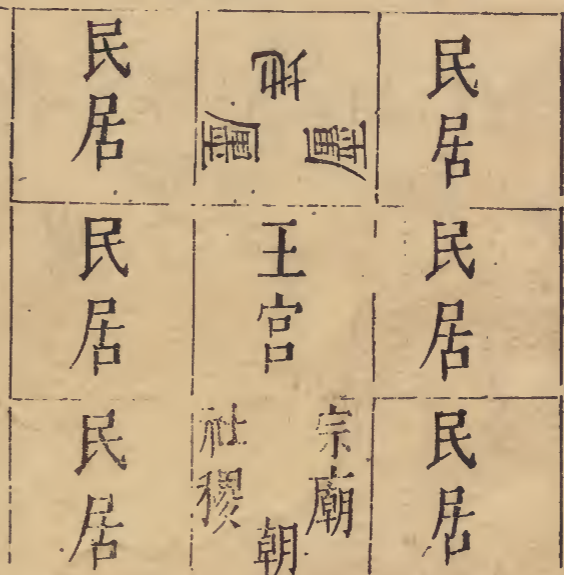 民居
廛
廛
民居
民居
王宮
民居
民居
宗廟
朝
社稷
民居